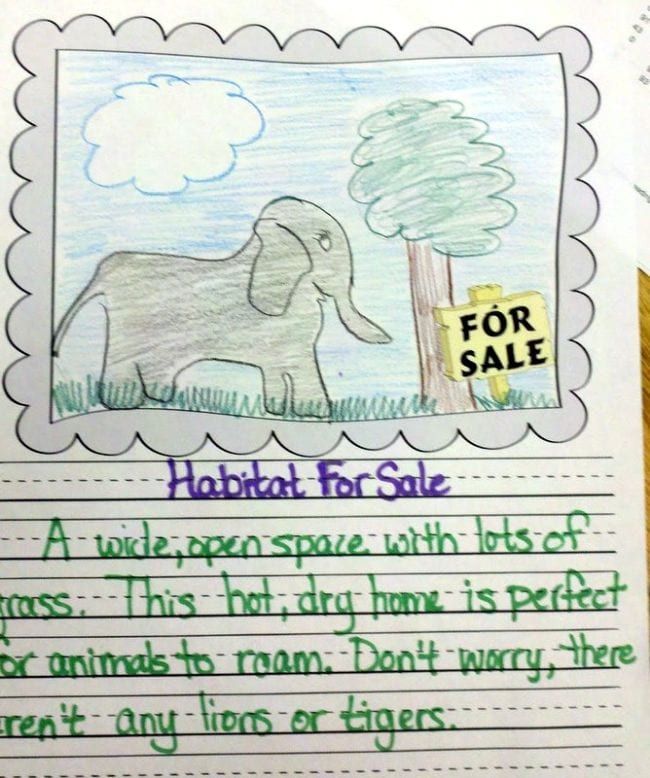 FOR
SALE
Habitat For Sale
A wide, open space with lots of
rass. This hot, dry home is perfect
or animals to roam. Don't worry, there
ren't any lions or tigers.